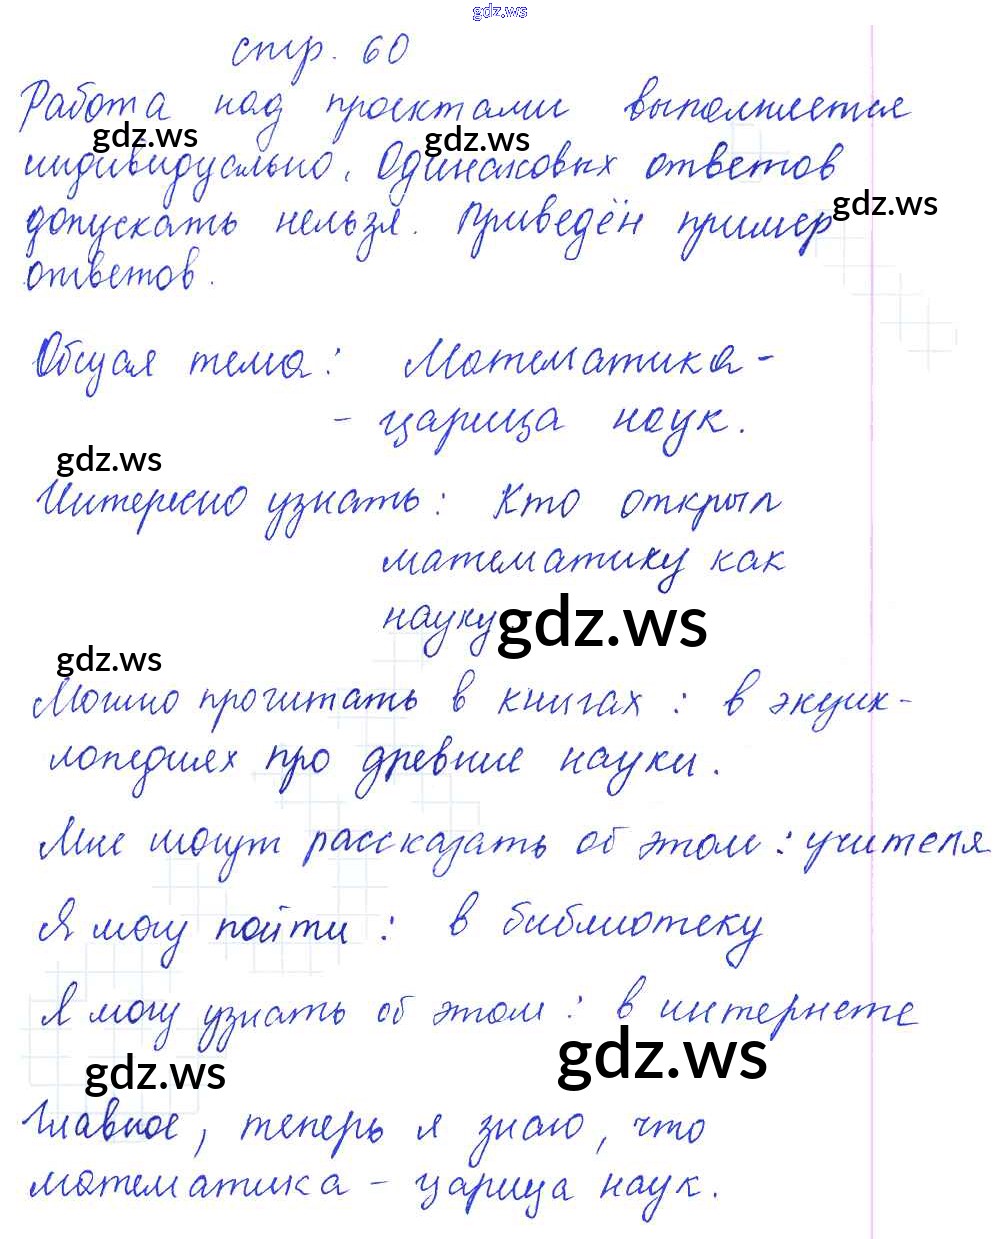 gdz.ws
стр. 60
Работа над проектами выполняется
gdz.ws gdz.ws
индивидуально. Одинаковых ответов
gdz.ws
допускать нельзя. Приведён пример
ответов.
Общая тема: Математика -
- царица наук.
gdz.ws
Интересно узнать: Кто открыл
математику как
науку
gdz.ws
gdz.ws
Можно прочитать в книгах: в энцик-
лопедиях про древние науки.
Мне могут рассказать об этом: учителя
Я могу пойти: в библиотеку
Я могу узнать об этом: в интернете
gdz.ws
gdz.ws
Главное, теперь я знаю, что
математика - царица наук.